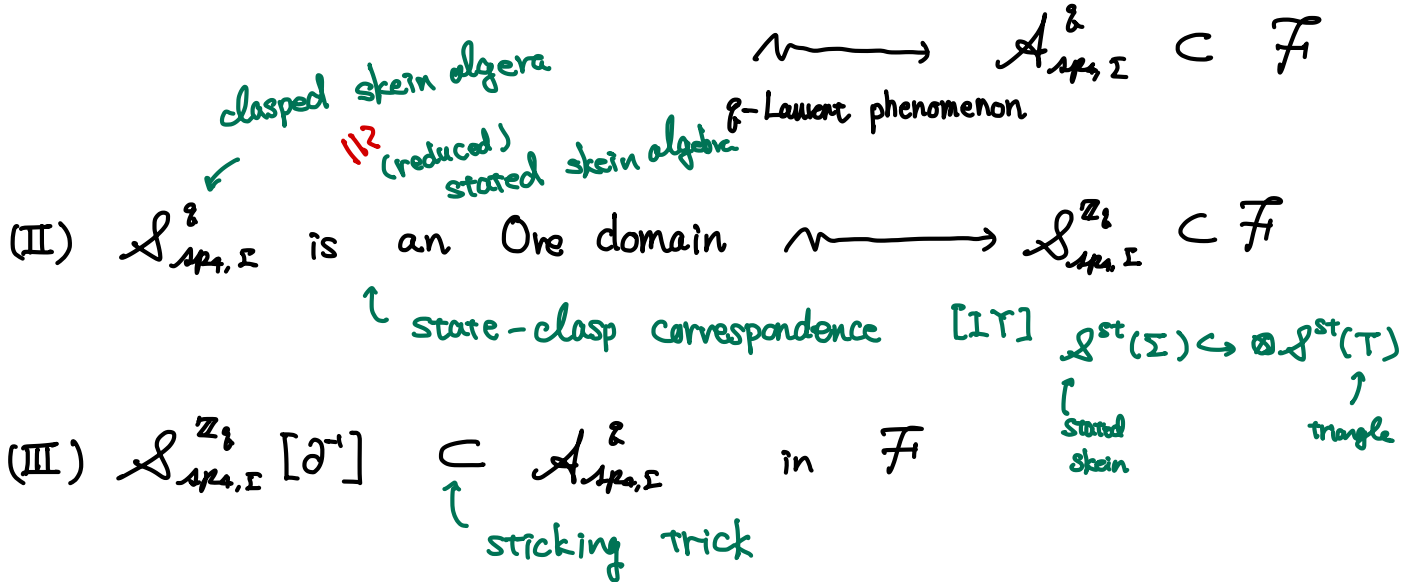 ⇝ 𝒜^q_{sp₄,Σ} ⊂ ℱ
q-Laurent phenomenon
clasped skein algera
≅ (reduced) stated skein algebra
(II) 𝒮^q_{sp₄,Σ} is an Ore domain ⇝ 𝒮^{ℤ_q}_{sp₄,Σ} ⊂ ℱ
state-clasp correspondence [IY] 𝒮^{st}(Σ) ↪ ⊗ 𝒮^{st}(T)
stated skein
triangle
(III) 𝒮^{ℤ_q}_{sp₄,Σ} [∂⁻¹] ⊂ 𝒜^q_{sp₄,Σ} in ℱ
sticking trick